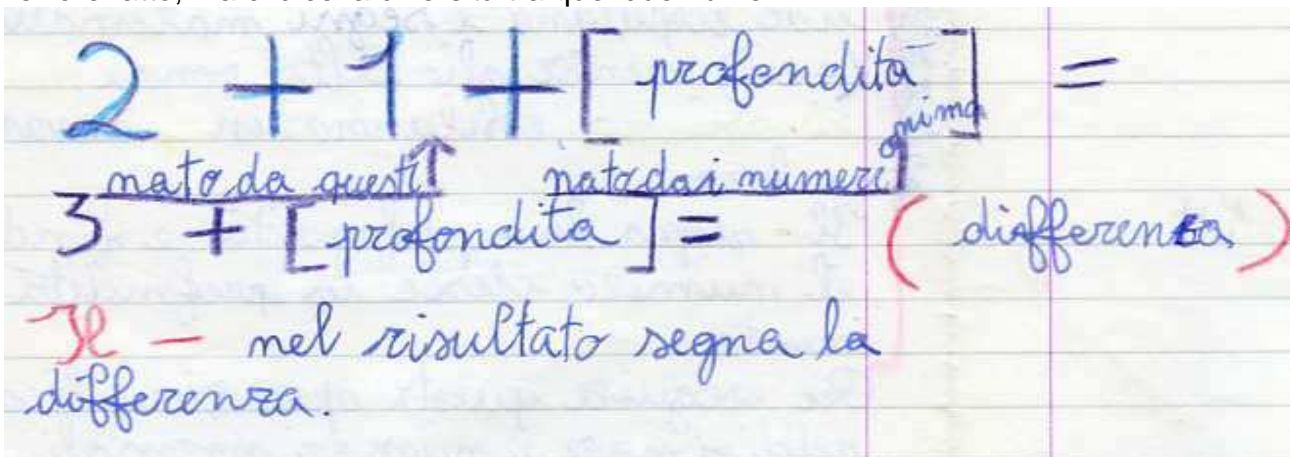 2 + 1 + [ profondità ] =
prima
nato da questi nato dai numeri
3 + [ profondita ] = ( differenza )
Il — nel risultato segna la
differenza.